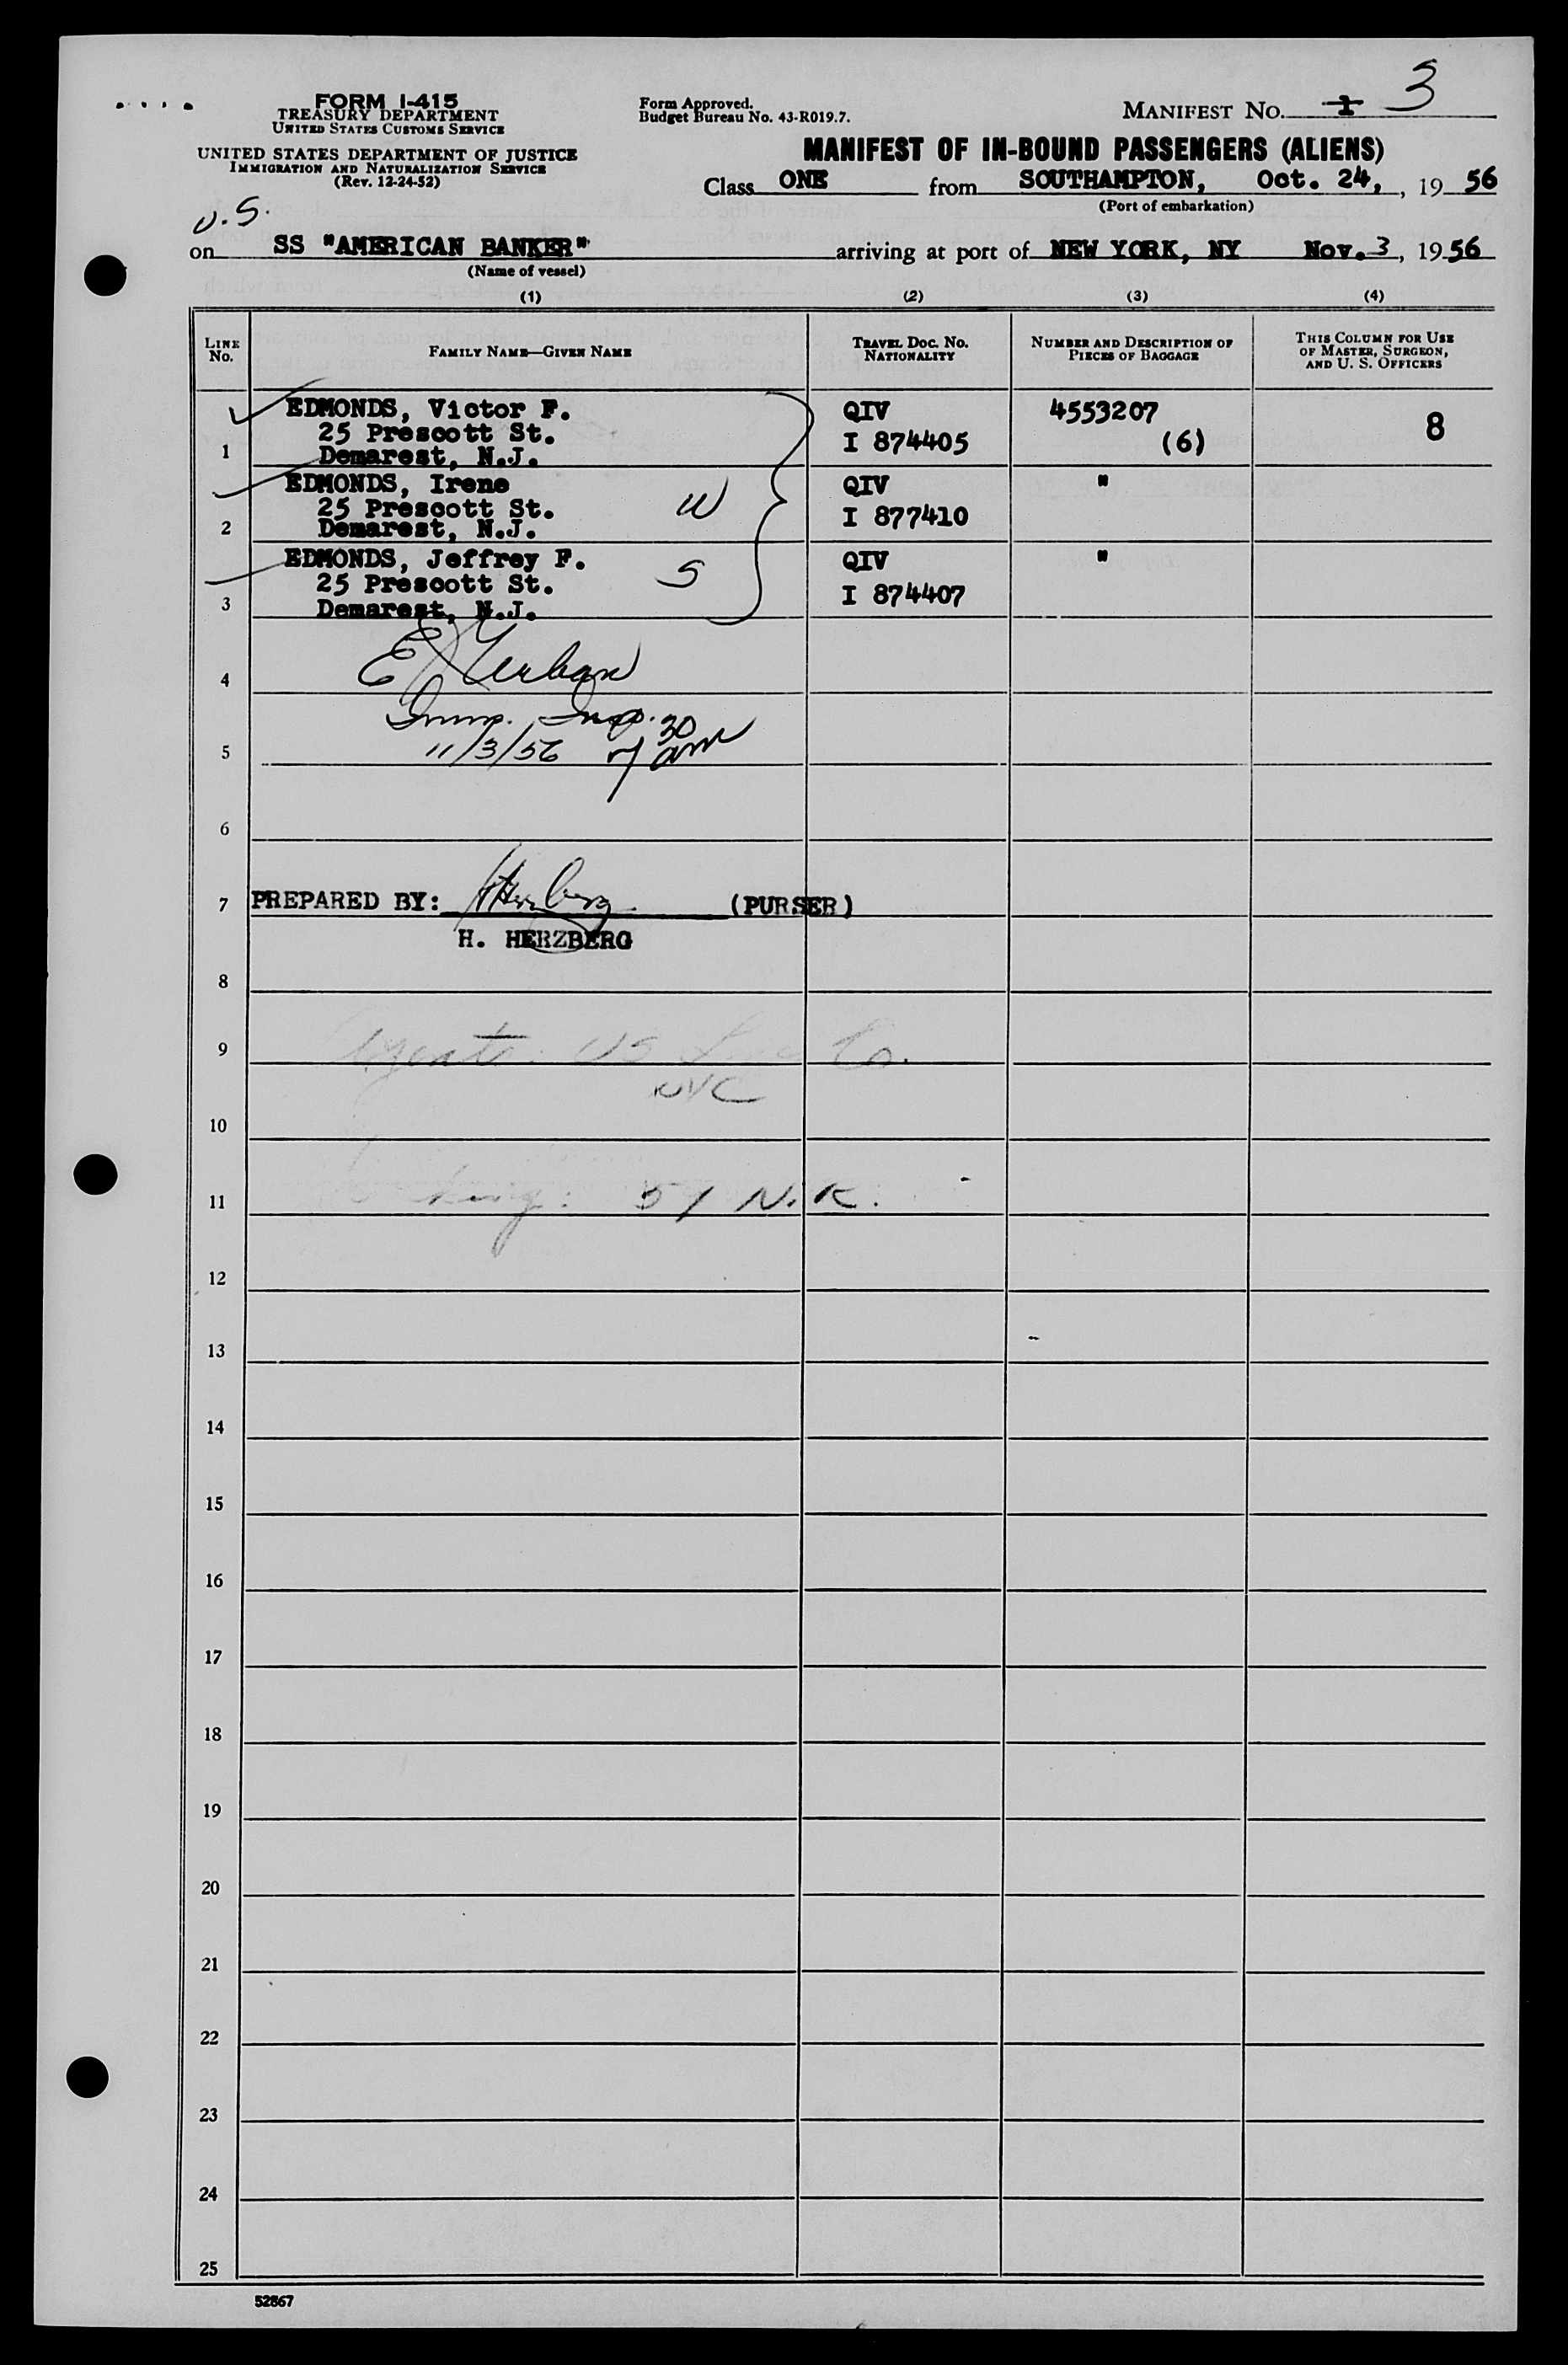 FORM I-415
TREASURY DEPARTMENT
UNITED STATES CUSTOMS SERVICE
UNITED STATES DEPARTMENT OF JUSTICE
IMMIGRATION AND NATURALIZATION SERVICE
(Rev. 12-24-52)
Form Approved.
Budget Bureau No. 43-R019.7.
MANIFEST NO. 1 3
MANIFEST OF IN-BOUND PASSENGERS (ALIENS)
Class ONE from SOUTHAMPTON, Oct. 24, , 19 56
(Port of embarkation)
U.S.
on SS "AMERICAN BANKER" arriving at port of NEW YORK, NY Nov. 3, 19 56
(Name of vessel)
(1) (2) (3) (4)
LINE No. FAMILY NAME—GIVEN NAME TRAVEL DOC. NO. NATIONALITY NUMBER AND DESCRIPTION OF PIECES OF BAGGAGE THIS COLUMN FOR USE OF MASTER, SURGEON, AND U. S. OFFICERS
EDMONDS, Victor F. QIV 4553207
25 Prescott St. I 874405 (6) 8
1 Demarest, N.J.
EDMONDS, Irene QIV "
25 Prescott St. W I 877410
2 Demarest, N.J.
EDMONDS, Jeffrey F. QIV "
25 Prescott St. S I 874407
3 Demarest, N.J.
4 E
5 Imm. Insp.
11/3/56 7 30 am
6
7 PREPARED BY: HHerzberg (PURSER)
H. HERZBERG
8
9 Agents: US Line Co.
NYC
10
11 51 N.R.
12
13
14
15
16
17
18
19
20
21
22
23
24
25
52867